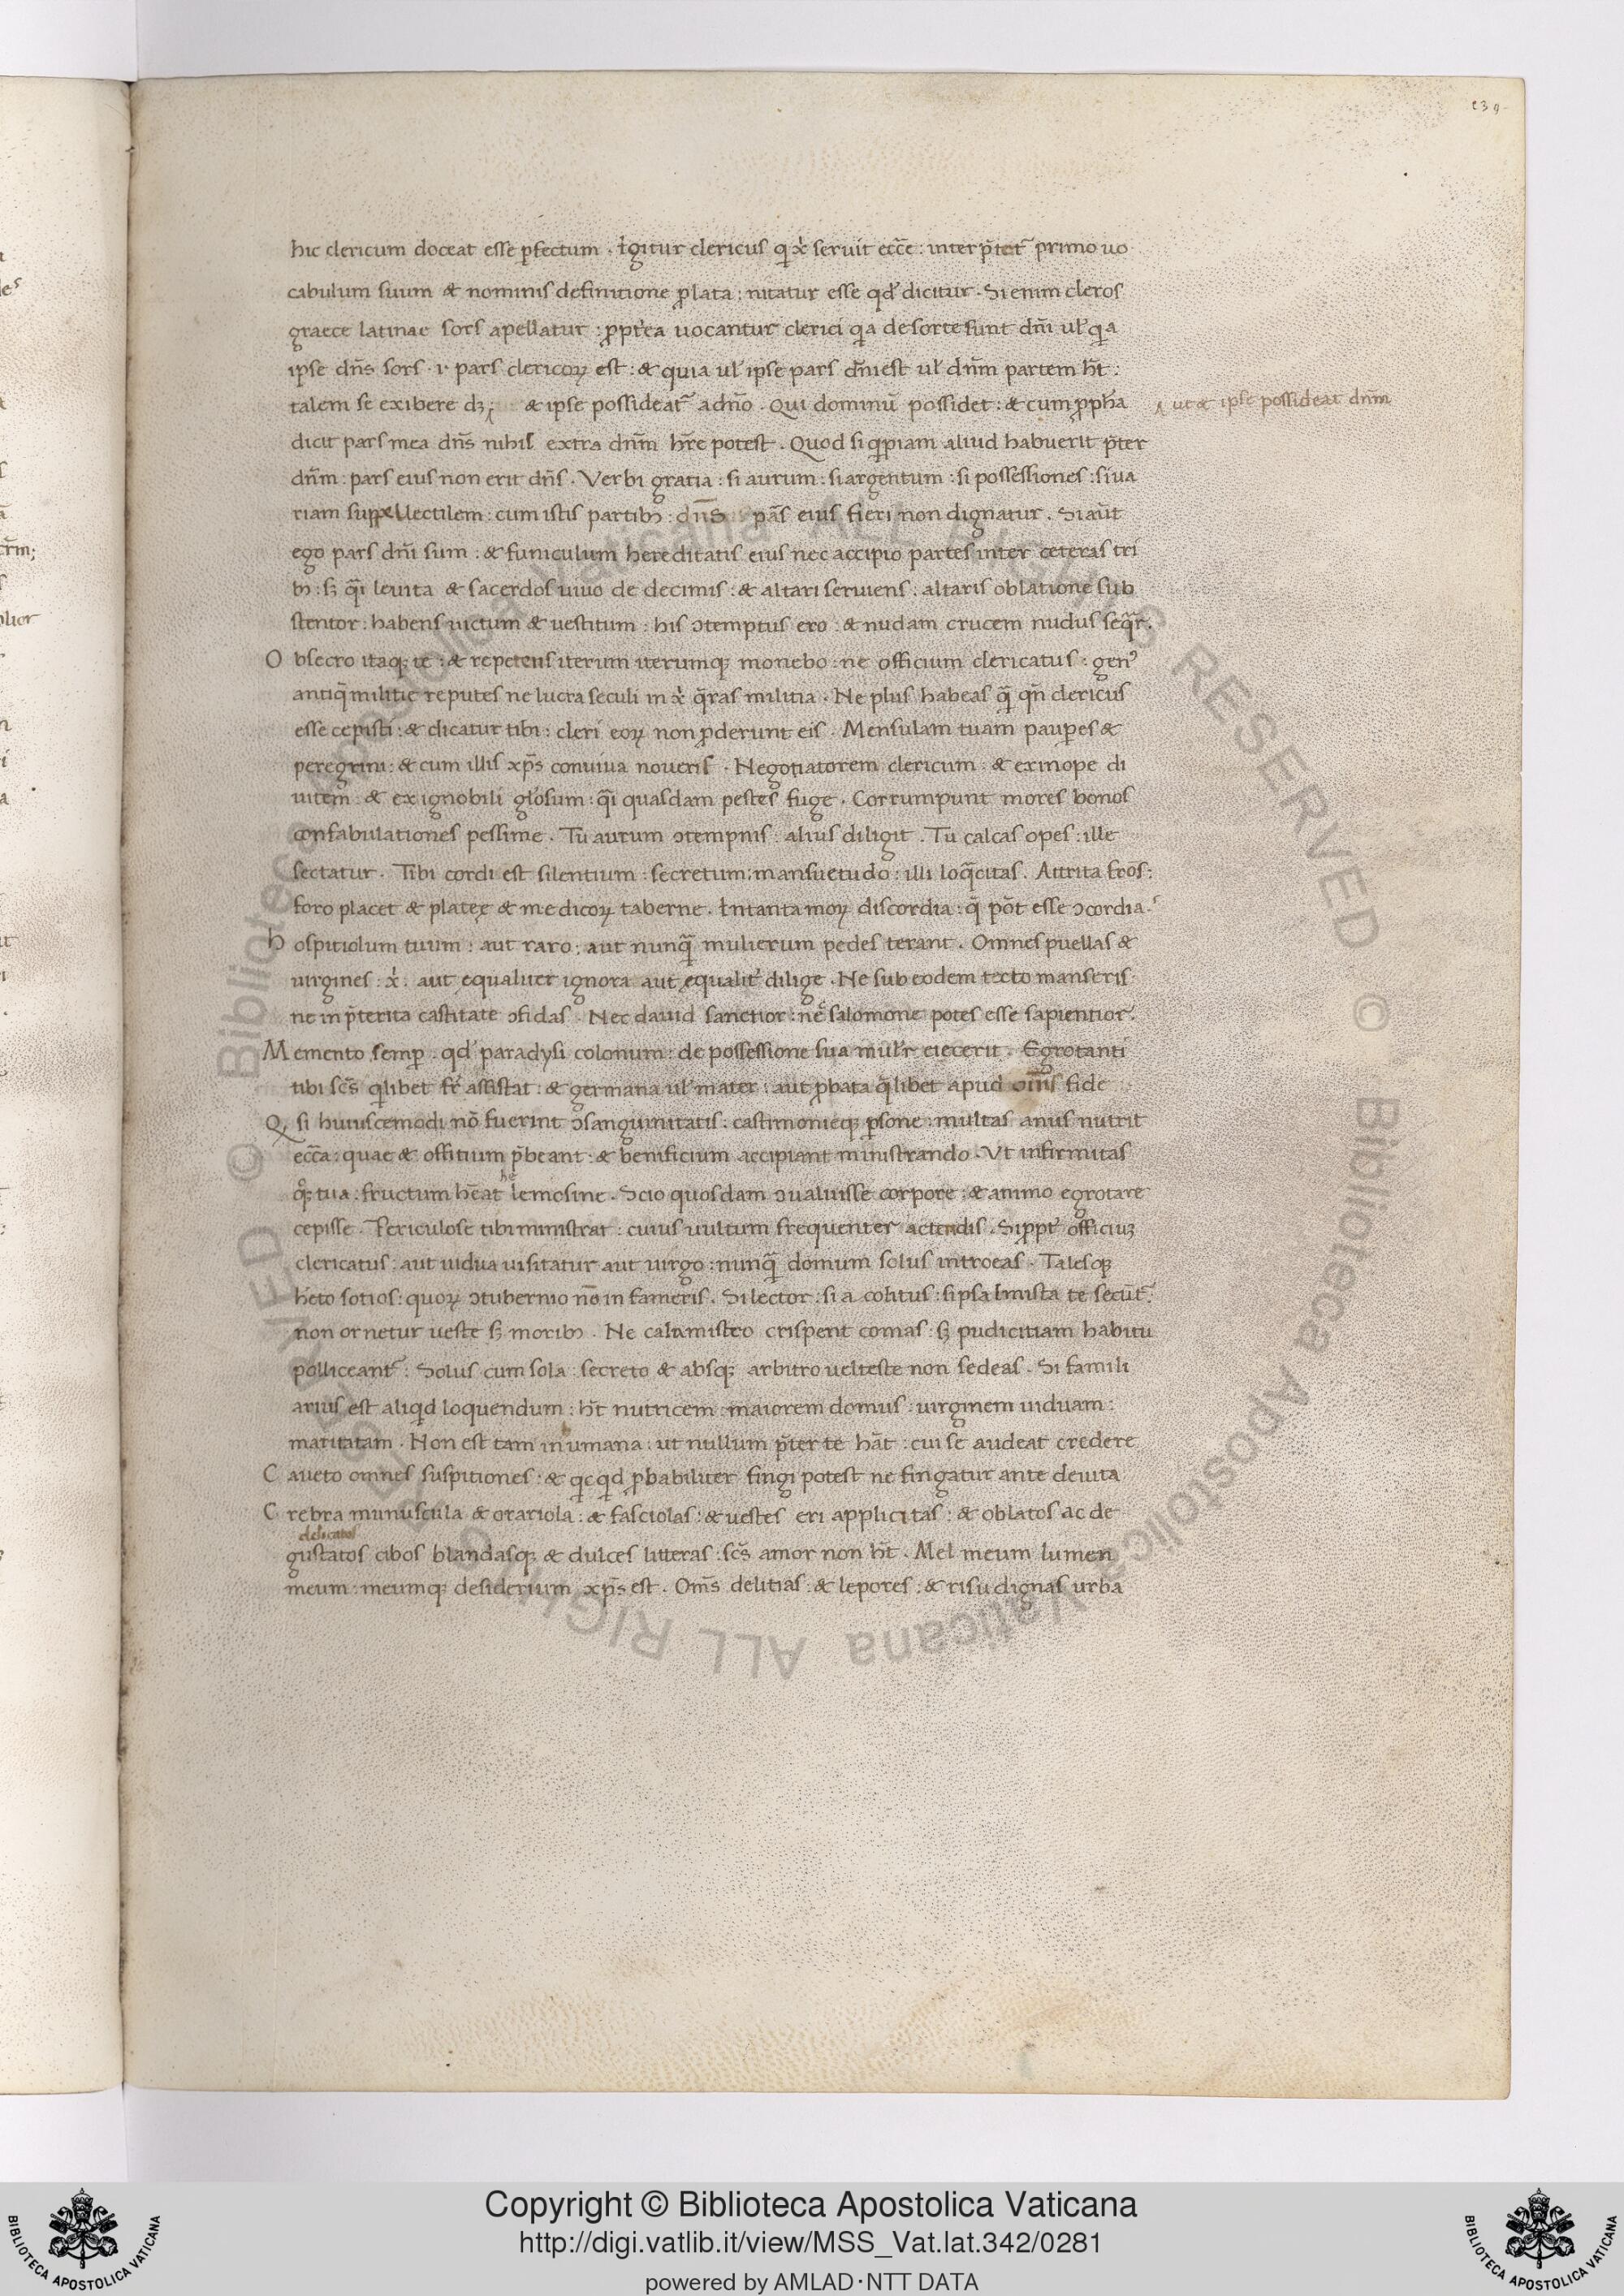 239
hic clericum doceat esse ꝑfectum . Igitur clericus q̇ xi̇ seruit ecc̄e : interp̄tet̄ primo uo
cabulum suum & nominis definitione ꝓlata : nitatur esse qd' dicitur . Si enim cleros
graece latinae sors apellatur : ꝓpt'ea uocantur clerici qi̇a de sorte sunt dn̄i ul' qi̇a
ipse dn̄s sors .i. pars clericoꝝ est : & quia ul' ipse pars dn̄i est ul' dn̄m partem ht̄ :
talem se exibere dꝫ & ipse possideat̄ a dn̄o . Qui dominū possidet : & cum ꝓph̄a
ut & ipse possideat dn̄m
dicit pars mea dn̄s nihil extra dn̄m hr̄e potest . Quod si qi̇piam aliud habuerit p̄ter
dn̄m : pars eius non erit dn̄s . Verbi gratia : si aurum : si argentum : si possessiones : si ua
riam suppellectilem : cum istis partibꝫ : dn̄s pās eius fieri non dignatur . Si aūt
ego pars dn̄i sum : & funiculum hereditatis eius nec accipio partes inter ceteras tri
bꝫ : sꝫ qāi leuita & sacerdos uiuo de decimis : & altari seruiens : altaris oblatione sub
stentor : habens uictum & uestitum : his ↄtemptus ero : & nudam crucem nudus seqr̄ .
Obsecro itaqꝫ te : & repetens iterum iterumqꝫ monebo : ne officium clericatus : gen᾿
antiq̄ militie reputes ne lucra seculi in xi̇ q̄ras militia . Ne plus habeas qā qn̄ clericus
esse cepisti : & dicatur tibi : cleri eoꝝ non ꝓderunt eis . Mensulam tuam pauꝑes &
peregrini : & cum illis xp̄s conuiua noueris . Negotiatorem clericum : & ex inope di
uitem : & ex ignobili gl'osum : qāi quasdam pestes fuge . Corrumpunt mores bonos
confabulationes pessime . Tu aurum ↄtempnis : alius diligit . Tu calcas opes : ille
sectatur . Tibi cordi est silentium : secretum : mansuetudo : illi loqc̄itas . Attrita frōs :
foro placet & plateę & medicoꝝ taberne . In tanta moꝝ discordia : q̄ pōt esse ↄcordia .
Hospitiolum tuum : aut raro : aut nunqā mulierum pedes terant . Omnes puellas &
uirgines : xi̇ . aut ęqualiter ignora aut ęqualit' dilige . Ne sub eodem tecto manseris
ne in p̄terita castitate ↄfidas . Nec dauid sanctior : nec̄ salomone potes esse sapientior .
Memento semꝑ . qd' paradysi colonum : de possessione sua mul'r eiecerit . Egrotanti
tibi sc̄s qi̇libet fr̄ assistat : & germana ul' mater : aut ꝓbata q̄libet apud om̄s fide
Qꝫ si huiuscemodi nō fuerint ↄsanguinitatis : castimonieqꝫ ꝑsone : multas anus nutrit
ecc̄a : quae & offitium p̄beant : & benificium accipiant ministrando . Ut infirmitas
qꝫ tua : fructum hēat helemosine . Scio quosdam ↄualuisse corpore : & animo egrotare
cepisse . Periculose tibi ministrat : cuius uultum frequenter actendis . Si ꝓpt' officiuꝫ
clericatus : aut uidua uisitatur aut uirgo : nunqā domum solus introeas . Talesqꝫ
heto sotios : quoꝝ ↄtubernio nō in fameris . Si lector : si a colitus : si psalmista te secūt̄ :
non ornetur ueste sꝫ moribꝫ . Ne calamistro crispent comas : sꝫ pudicitiam habitu
polliceant̄ : Solus cum sola : secreto & absqꝫ arbitro uel teste non sedeas . Si famili
arius est aliqi̇d loquendum : ht̄ nutricem : maiorem domus : uirginem uiduam :
maritatam . Non est tam in umana : ut nullum p̄ter te hāt : cui se audeat credere
Caueto omnes suspitiones : & qi̇cqi̇d ꝓbabiliter fingi potest ne fingatur ante deuita
Crebra munuscula & orariola : & fasciolas : & uestes eri applicitas : & oblatos ac de
delicatos
gustatos cibos blandasqꝫ & dulces litteras : sc̄s amor non ht̄ . Mel meum lumen
meum : meumqꝫ desiderium xp̄s est . Om̄s delitias : & lepores : & risu dignas urba
Copyright © Biblioteca Apostolica Vaticana
http://digi.vatlib.it/view/MSS_Vat.lat.342/0281
powered by AMLAD·NTT DATA
BIBLIOTECA APOSTOLICA VATICANA
BIBLIOTECA APOSTOLICA VATICANA
© Biblioteca Apostolica Vaticana ALL RIGHTS RESERVED © Biblioteca Apostolica Vaticana ALL RIGHTS RESERVED